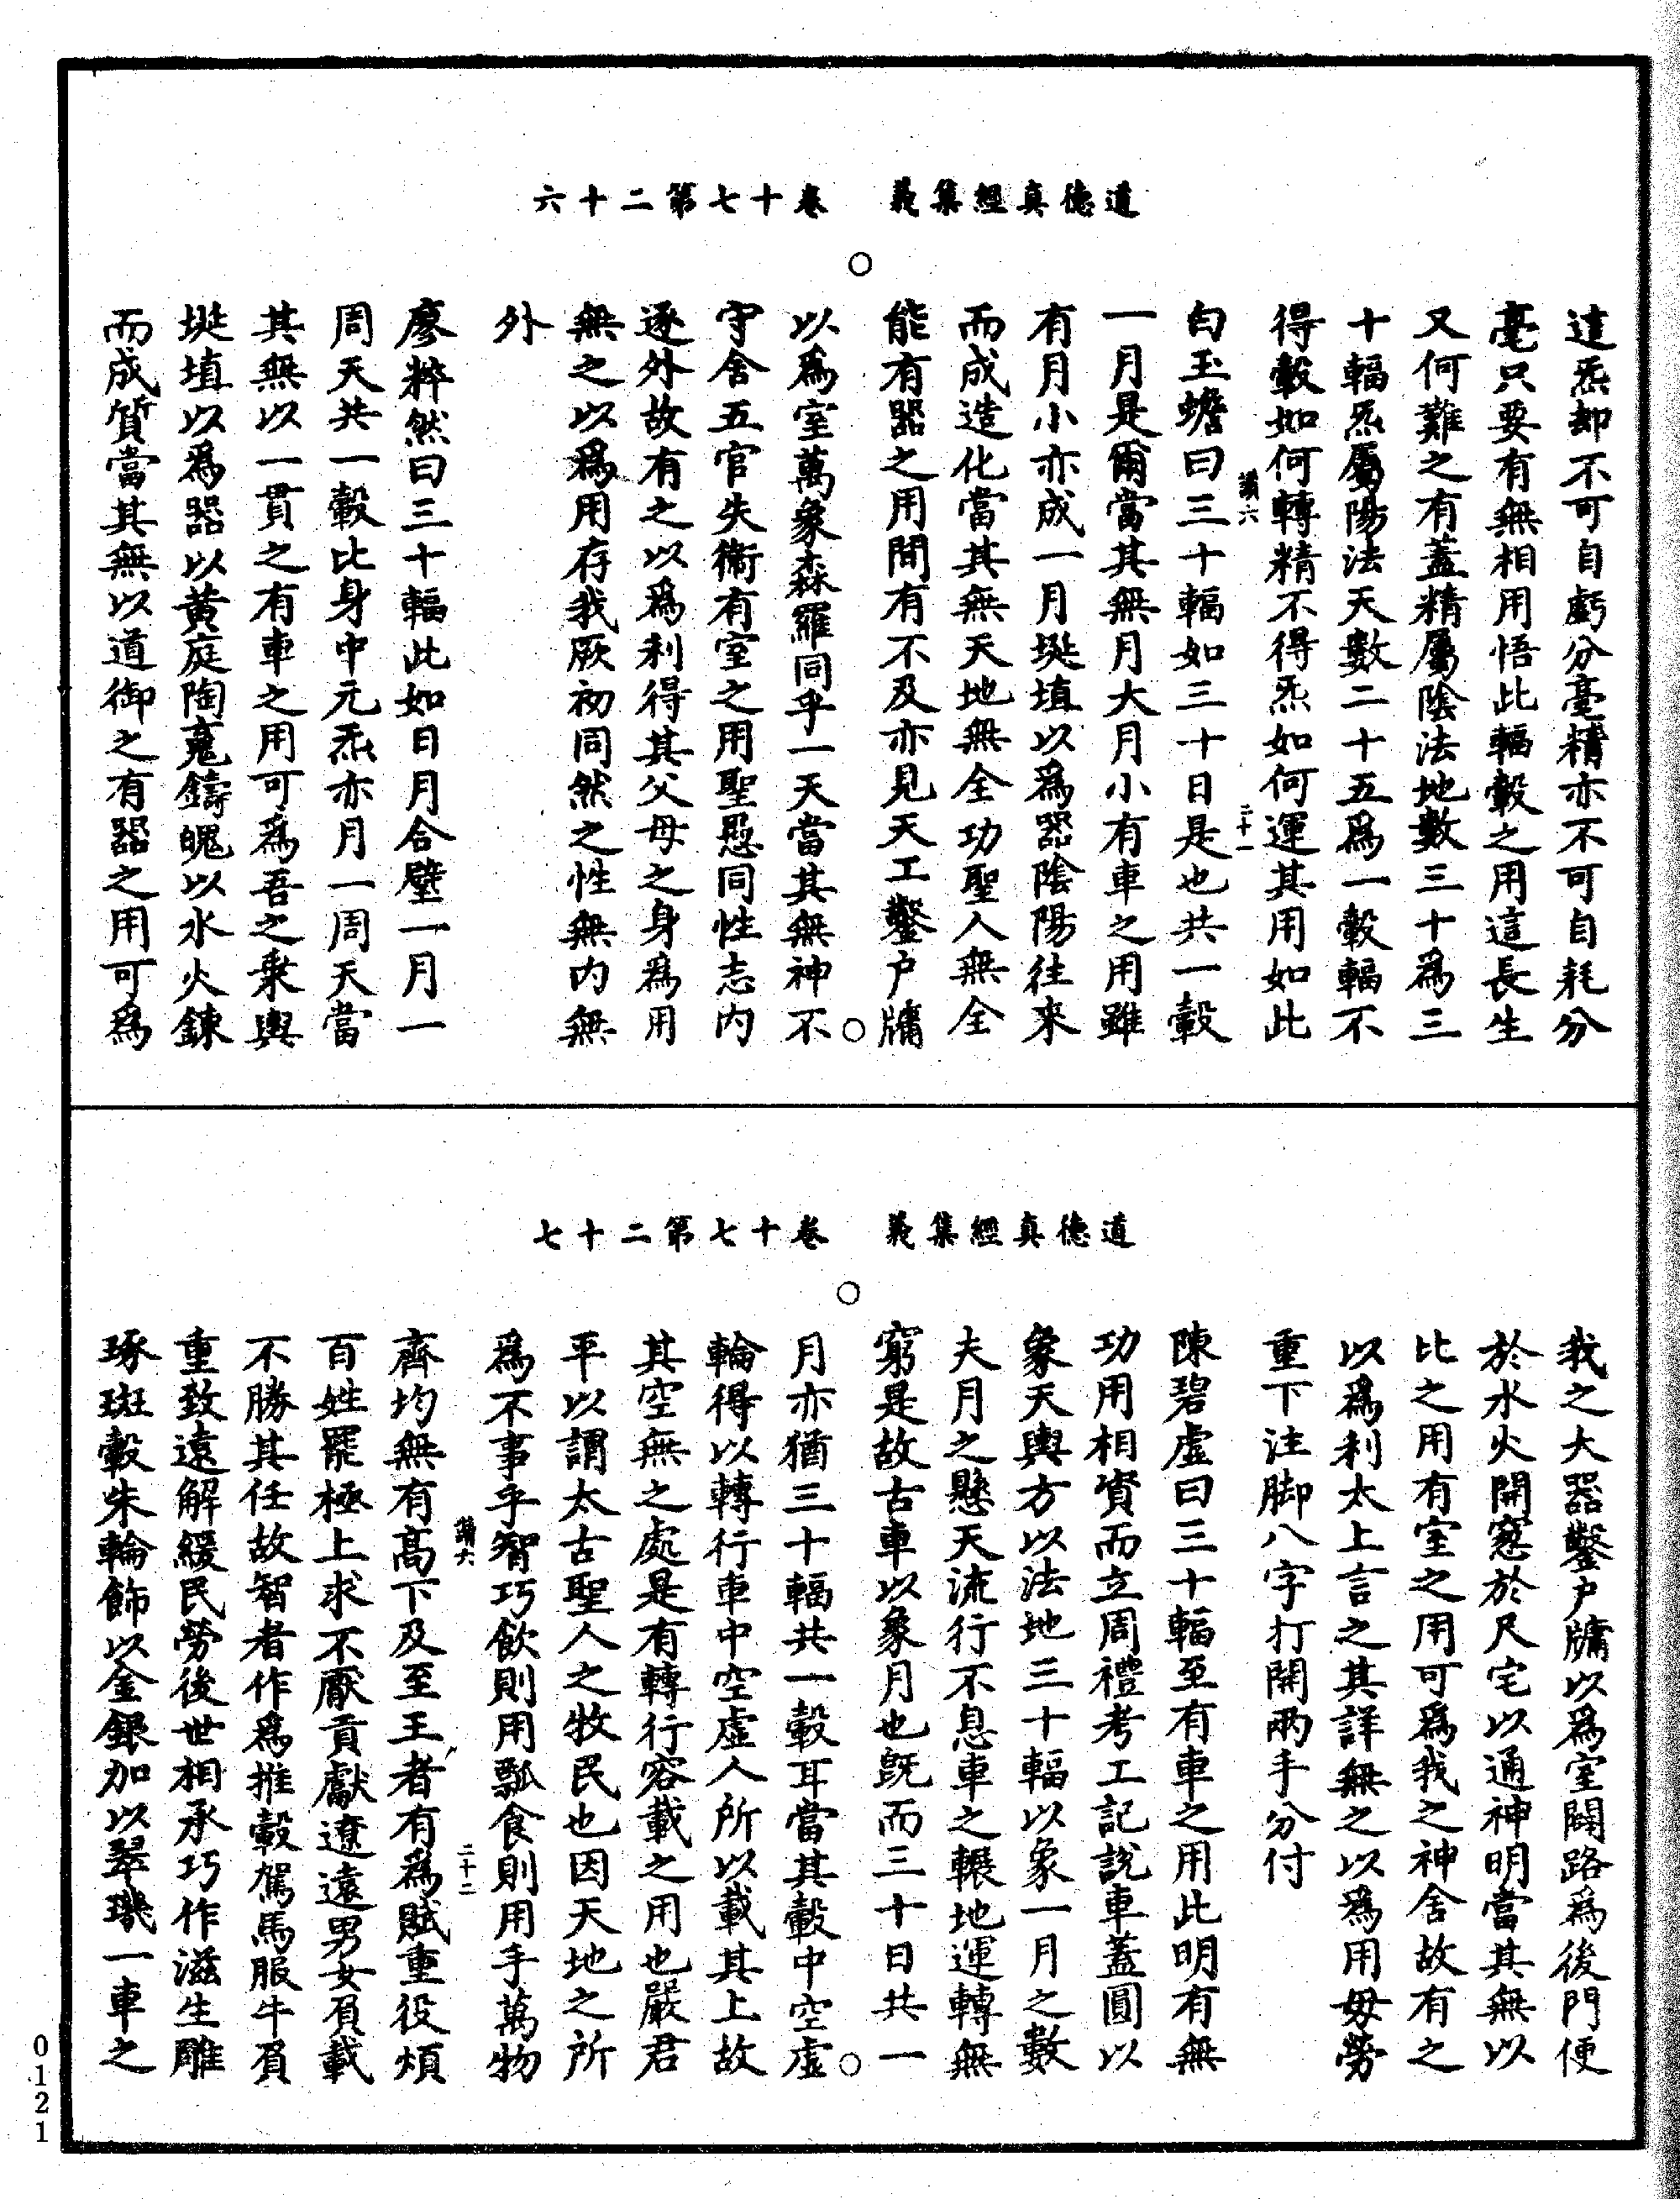 道德真經集義　卷十七第二十六
這炁却不可自虧分毫精亦不可自耗分
毫只要有無相用悟此輻轂之用這長生
又何難之有蓋精屬陰法地數三十爲三
十輻炁屬陽法天數二十五爲一轂輻不
得轂如何轉精不得炁如何運其用如此
讃六　二十一
白玉蟾曰三十輻如三十日是也共一轂
一月是爾當其無月大月小有車之用雖
有月小亦成一月埏埴以爲器陰陽往來
而成造化當其無天地無全功聖人無全
能有器之用間有不及亦見天工鑿户牖
以爲室萬象森羅同乎一天當其無神不
守舍五官失衛有室之用聖愚同性志内
逐外故有之以爲利得其父母之身爲用
無之以爲用存我厥初同然之性無内無
外
廖粹然曰三十輻此如日月合璧一月一
周天共一轂比身中元炁亦月一周天當
其無以一貫之有車之用可爲吾之乘輿
埏埴以爲器以黄庭陶䰟鑄魄以水火鍊
而成質當其無以道御之有器之用可爲
道德真經集義　卷十七第二十七
我之大器鑿户牖以爲室闢路爲後門便
於水火開窓於尺宅以通神明當其無以
比之用有室之用可爲我之神舍故有之
以爲利太上言之其詳無之以爲用毋勞
重下注脚八字打開兩手分付
陳碧虚曰三十輻至有車之用此明有無
功用相資而立周禮考工記說車蓋圓以
象天輿方以法地三十輻以象一月之數
夫月之懸天流行不息車之輾地運轉無
窮是故古車以象月也既而三十日共一
月亦猶三十輻共一轂耳當其轂中空虚
輪得以轉行車中空虚人所以載其上故
其空無之處是有轉行容載之用也嚴君
平以謂太古聖人之牧民也因天地之所
爲不事乎智巧飲則用瓢食則用手萬物
讃六　二十二
齊均無有高下及至王者有爲賦重役煩
百姓罷極上求不厭貢獻遼遠男女負載
不勝其任故智者作爲推轂駕馬服牛負
重致遠解緩民勞後世相承巧作滋生雕
琢斑轂朱輪飾以金銀加以翠璣一車之
0121